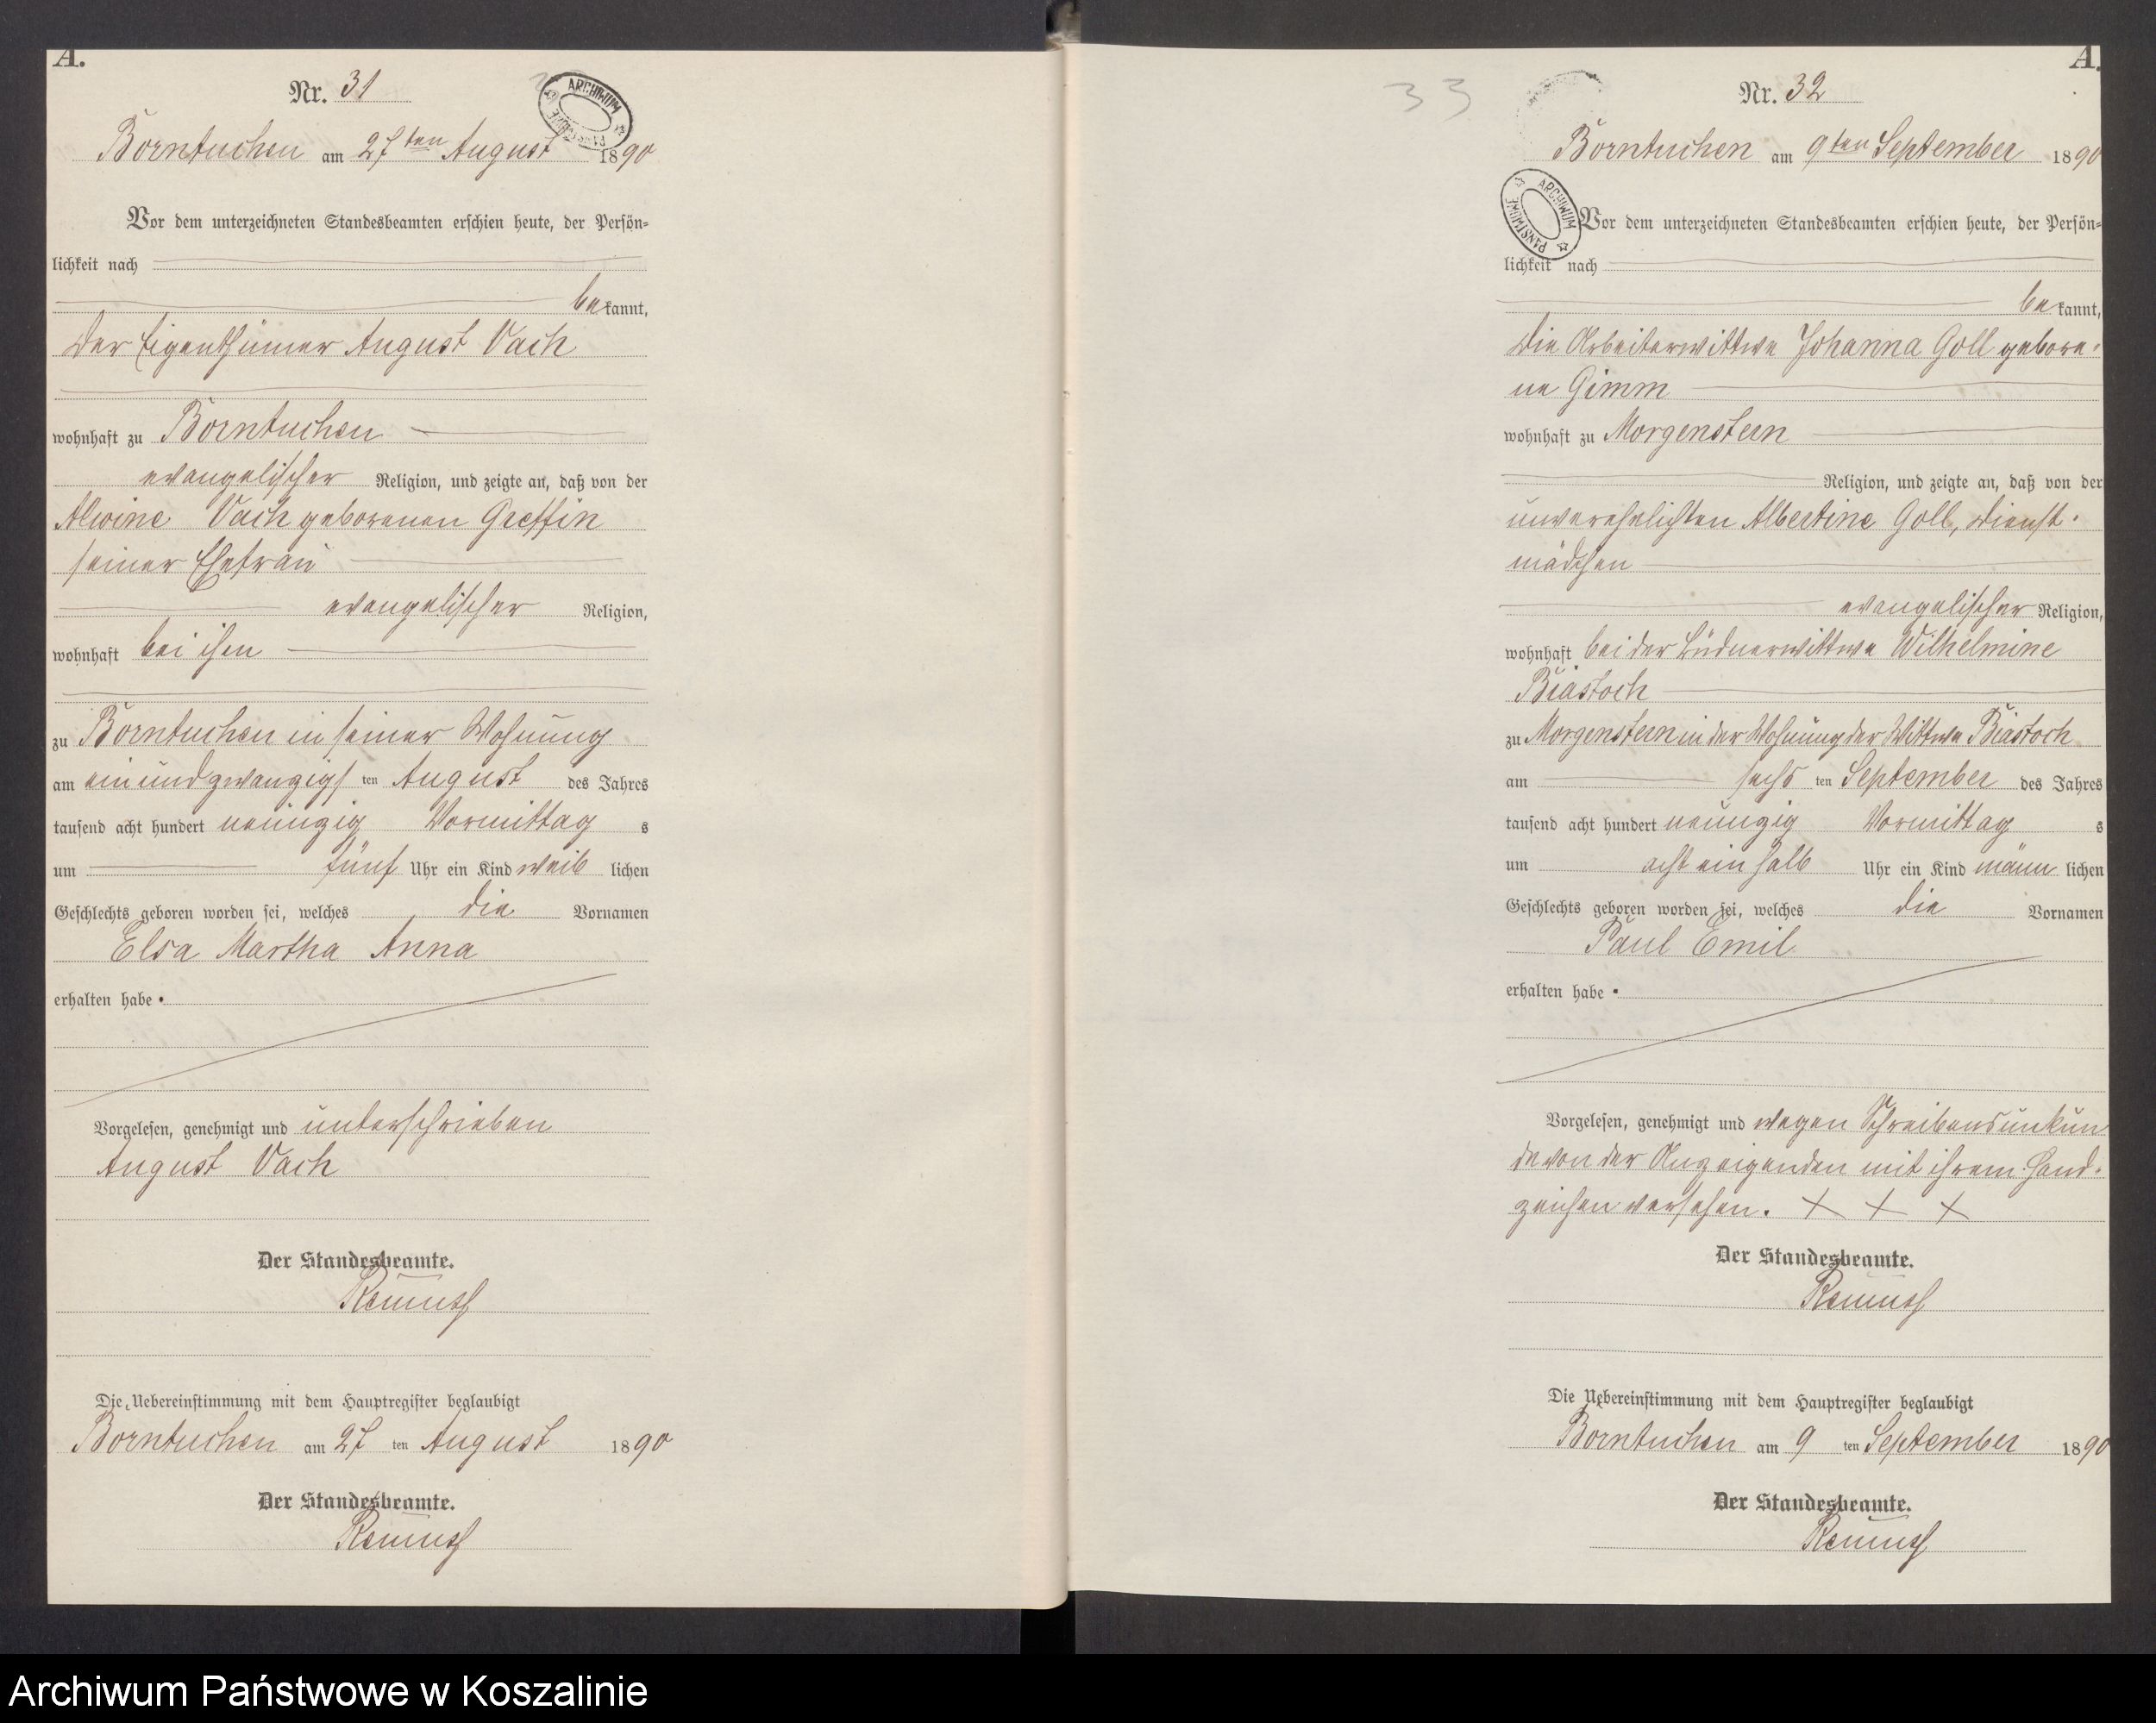 A.
Nr. 31
ARCHIWUM PAŃSTWOWE
Borntuchen am 27ten August 1890
Vor dem unterzeichneten Standesbeamten erschien heute, der Persön=
lichkeit nach
bekannt,
der Eigenthümer August Vach
wohnhaft zu Borntuchen
evangelischer Religion, und zeigte an, daß von der
Alwine Vach geborenen Greffin
seiner Ehefrau
evangelischer Religion,
wohnhaft bei ihm
zu Borntuchen in seiner Wohnung
am einundzwanzigsten August des Jahres
tausend acht hundert neunzig Vormittags
um fünf Uhr ein Kind weiblichen
Geschlechts geboren worden sei, welches die Vornamen
Elsa Martha Anna
erhalten habe.
Vorgelesen, genehmigt und unterschrieben
August Vach
Der Standesbeamte.
Die Uebereinstimmung mit dem Hauptregister beglaubigt
Borntuchen am 27 ten August 1890
Der Standesbeamte.
A.
33
Nr. 32
Borntuchen am 9ten September 1890
ARCHIWUM PAŃSTWOWE
Vor dem unterzeichneten Standesbeamten erschien heute, der Persön=
lichkeit nach
bekannt,
die Arbeiterwittwe Johanna Goll gebore-
ne Gimm
wohnhaft zu Morgenstern
Religion, und zeigte an, daß von der
unverehelichten Albertine Goll, Dienst-
mädchen
evangelischer Religion,
wohnhaft bei der Büdnerwittwe Wilhelmine
Biastoch
zu Morgenstern in der Wohnung der Wittwe Biastoch
am sechsten September des Jahres
tausend acht hundert neunzig Vormittags
um acht ein halb Uhr ein Kind männlichen
Geschlechts geboren worden sei, welches die Vornamen
Paul Emil
erhalten habe.
Vorgelesen, genehmigt und wegen Schreibensunkun
de von der Anzeigenden mit ihrem Hand-
zeichen versehen. + + +
Der Standesbeamte.
Die Uebereinstimmung mit dem Hauptregister beglaubigt
Borntuchen am 9 ten September 1890
Der Standesbeamte.
Archiwum Państwowe w Koszalinie